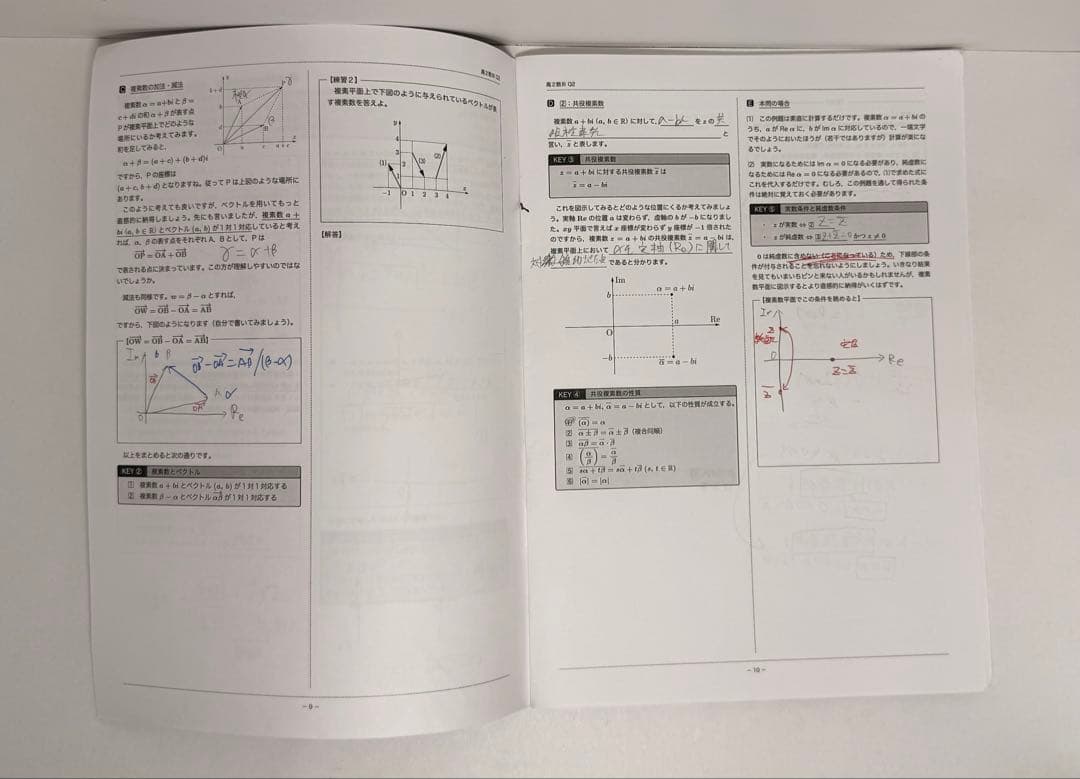 C 複素数の加法・減法
複素数 α = a + bi と β =
c + di の和 α + β が表す点
P が複素平面上でどのような
場所にいるか考えてみます。
和を足してみると、
α + β = (a + c) + (b + d)i
ですから、P の座標は
(a + c, b + d) となりますね。従って P は上図のような場所に
あります。
このように考えても良いですが、ベクトルを用いてもっと
直感的に納得しましょう。先にも言いましたが、複素数 a +
bi (a, b ∈ R) とベクトル (a, b) が1対1対応していると考え
れば、α, β の表す点をそれぞれ A, B として、P は
OP = OA + OB
γ = α + β
で表される点に決まっています。この方が理解しやすいのではな
いでしょうか。
減法も同様です。w = β − α とすれば、
OW = OB − OA = AB
ですから、下図のようになります（自分で書いてみましょう）。
[OW = OB − OA = AB]
Im
OB − OA = AB / (β − α)
α
OA
O
Re
以上をまとめると次の通りです。
KEY ② 複素数とベクトル
1 複素数 a + bi とベクトル (a, b) が1対1対応する
2 複素数 β − α とベクトル αβ が1対1対応する
− 9 −
高2数III Q2
【練習2】
複素平面上で下図のように与えられているベクトルが表
す複素数を答えよ。
y
4
3
2
1
(1)
(2)
(3)
−1 O 1 2 3 4
x
【解答】
高2数III Q2
D ②：共役複素数
複素数 a + bi (a, b ∈ R) に対して、a − bi を z の共
役複素数 と
言い、z̄ と表します。
KEY ③ 共役複素数
z = a + bi に対する共役複素数 z̄ は
z̄ = a − bi
これを図示してみるとどのような位置にくるか考えてみましょ
う。実軸 Re の位置 a は変わらず、虚軸の b が −b になりまし
た。xy 平面で言えば x 座標が変わらず y 座標が −1 倍された
のですから、複素数 z = a + bi の共役複素数 z̄ = a − bi は、
複素平面上において 実軸 (Re) に関して
であると分かります。
Im
b
α = a + bi
a
Re
O
−b
ᾱ = a − bi
KEY ④ 共役複素数の性質
α = a + bi, ᾱ = a − bi として、以下の性質が成立する。
1 (ᾱ)‾ = α
2 (α ± β)‾ = ᾱ ± β̄ (複合同順)
3 (αβ)‾ = ᾱ · β̄
4 (α/β)‾ = ᾱ/β̄
5 (sα + tβ)‾ = sᾱ + tβ̄ (s, t ∈ R)
6 |ᾱ| = |α|
E 本問の場合
(1) この例題は素直に計算するだけです。複素数 α = a + bi の
うち、a が Re α に、b が Im α に対応しているので、一種文字
でそのようにおいたほうが（若干ではありますが）計算が楽にな
るでしょう。
(2) 実数になるためには Im α = 0 になる必要があり、純虚数に
なるためには Re α = 0 になる必要があるので、(1)で求めた式に
これを代入するだけです。むしろ、この例題を通して得られた条
件は絶対に覚えておく必要があります。
KEY ⑤ 実数条件と純虚数条件
・ z が実数 ⇔ z = z̄
・ z が純虚数 ⇔ z + z̄ = 0 かつ z ≠ 0
0 は純虚数に含めない（ことになっている）ため、下線部の条
件が付与されることを忘れないようにしましょう。いきなり結果
を見てもいまいちピンと来ない人がいるかもしれませんが、複素
数平面に図示するとより直感的に納得がいくはずです。
【複素数平面でこの条件を眺めると】
Im
z
O
実数
z = z̄
Re
z̄
− 10 −